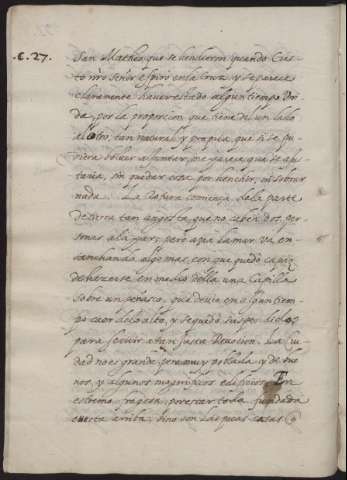 .C. 27.
San Matheo que se hendieron quando Cris-
to nro Señor espiró en la Cruz, y se parece
claramente haver estado algun tiempo vni-
da, por la proporcion que tiene de un lado
al otro, tan natural y propia, que si se pu-
diera bolver a juntar, me parece que se ajus-
taria, sin quedar cosa por henchir, ni sobrar
nada. La Rotura comiença de la parte
de tierra tan angosta que no caben dos per-
sonas a la par, pero azia la mar va en-
sanchando algo mas, con que quedó capaz
de hazerse en medio della una Capilla
sobre un peñasco, que devio en algun tiem-
po caer de lo alto, y se quedó suspendido
para servir a tan justa Devocion. La Ciu-
dad no es grande, pero muy poblada, y de bue-
nos, y algunos magnificos edificios. En
estremo fragosa, por estar toda fundada
cuesta arriba, sino son las pocas casas